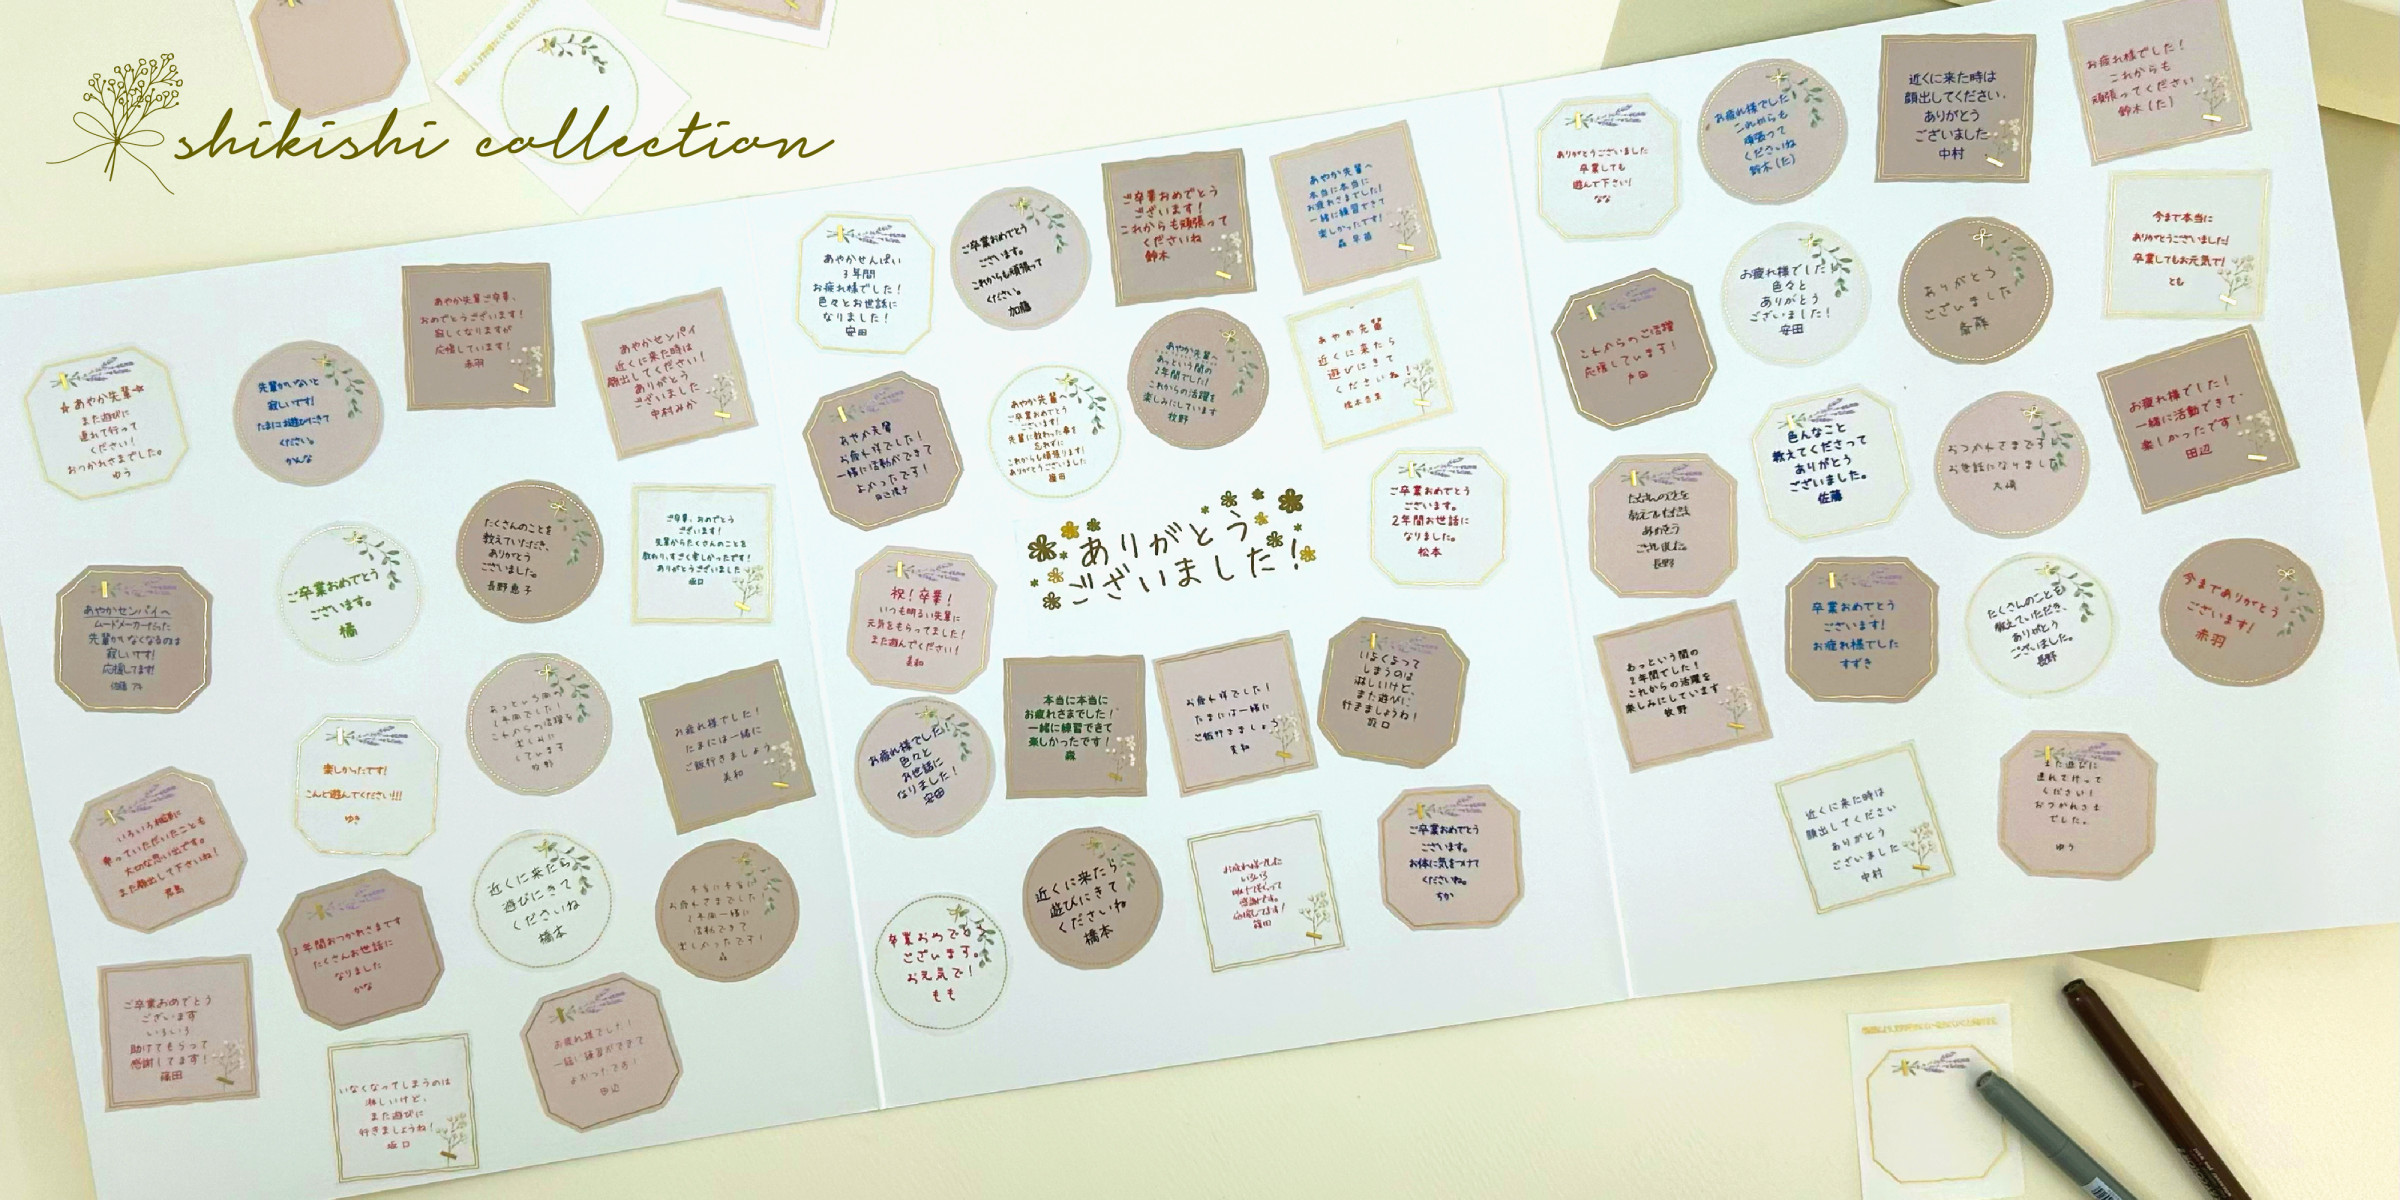 shikishi collection
☆あやか先輩☆
また遊びに
連れて行って
ください！
おつかれさまでした。
ゆう
先輩がいないと
寂しいです！
たまにはお遊びにきて
ください。
かんな
あやか先輩ご卒業、
おめでとうございます！
寂しくなりますが
応援しています！
赤羽
あやかセンパイ
近くに来た時は
顔出してください！
ありがとう
ございました
中村みか
あやかセンパイへ
ムードメーカーだった
先輩がいなくなるのは
寂しいです！
応援してます！
ご卒業おめでとう
ございます。
橘
たくさんのことを
教えていただき、
ありがとう
ございました。
長野恵子
ご卒業、おめでとう
ございます！
先輩からたくさんのことを
教わり、すごく楽しかったです！
ありがとうございました
坂口
楽しかったです！
こんど遊んでください!!!
ゆき
あっという間の
2年間でした！
これからの活躍を
楽しみに
しています
牧野
お疲れ様でした！
たまには一緒に
ご飯行きましょう
美和
いろいろ相談に
乗っていただいたことも
大切な思い出です。
また顔出して下さいね！
3年間おつかれさまです
たくさんお世話に
なりました
かな
近くに来たら
遊びにきて
くださいね
橋本
本当に本当に
お疲れさまでした！
2年間一緒に
活動できて
楽しかったです！
森
ご卒業おめでとう
ございます
いろいろ
助けてもらって
感謝してます！
篠田
いなくなってしまうのは
淋しいけど、
また遊びに
行きましょうね！
坂口
お疲れ様でした！
一緒に練習ができて
よかったです！
田辺
あやかせんぱい
3年間
お疲れ様でした！
色々とお世話に
なりました！
安田
ご卒業おめでとう
ございます。
これからも頑張って
ください。
加藤
ご卒業おめでとう
ございます！
これからも頑張って
くださいね
鈴木
あやか先輩へ
本当に本当に
お疲れさまでした！
一緒に練習できて
楽しかったです！
森早苗
あやか先輩
お疲れ様でした！
一緒に活動ができて
よかったです！
あやか先輩へ
ご卒業おめでとう
ございます！
先輩に教わった事を
忘れずに
これからも頑張ります！
ありがとうございました
篠田
あやか先輩へ
あっという間の
2年間でした！
これからの活躍を
楽しみにしています
牧野
あやか先輩
近くに来たら
遊びにきて
くださいね！
ご卒業おめでとう
ございます。
2年間お世話に
なりました。
松本
ありがとう
ございました！
祝！卒業！
いつも明るい先輩に
元気をもらってました！
また遊んでください！
美和
お疲れ様でした！
色々と
お世話に
なりました！
安田
本当に本当に
お疲れさまでした！
一緒に練習できて
楽しかったです！
森
お疲れ様でした！
たまには一緒に
ご飯行きましょう
美和
いなくなって
しまうのは
淋しいけど、
また遊びに
行きましょうね！
坂口
卒業おめでとう
ございます。
お元気で！
もも
近くに来たら
遊びにきて
くださいね
橋本
お疲れ様でした
いろいろ
助けてもらって
感謝です。
応援してます！
篠田
ご卒業おめでとう
ございます。
お体に気をつけて
くださいね。
ちか
ありがとうございました
卒業しても
遊んで下さい！
なな
お疲れ様でした！
これからも
頑張って
くださいね
鈴木(た)
近くに来た時は
顔出してください。
ありがとう
ございました
中村
お疲れ様でした！
これからも
頑張ってください
鈴木(た)
これからのご活躍
応援しています！
戸田
お疲れ様でした！
色々と
ありがとう
ございました！
安田
ありがとう
ございました
斎藤
今まで本当に
ありがとうございました！
卒業してもお元気で！
とも
たくさんのことを
教えていただき
ありがとう
ございました。
長野
色んなこと
教えてくださって
ありがとう
ございました。
佐藤
おつかれさまです
お世話になりました
大崎
お疲れ様でした！
一緒に活動できて、
楽しかったです！
田辺
あっという間の
2年間でした！
これからの活躍を
楽しみにしています
牧野
卒業おめでとう
ございます！
お疲れ様でした
すずき
たくさんのことを
教えていただき、
ありがとう
ございました。
長野
今までありがとう
ございます！
赤羽
近くに来た時は
顔出してください
ありがとう
ございました
中村
また遊びに
連れて行って
ください！
おつかれさま
でした。
ゆう